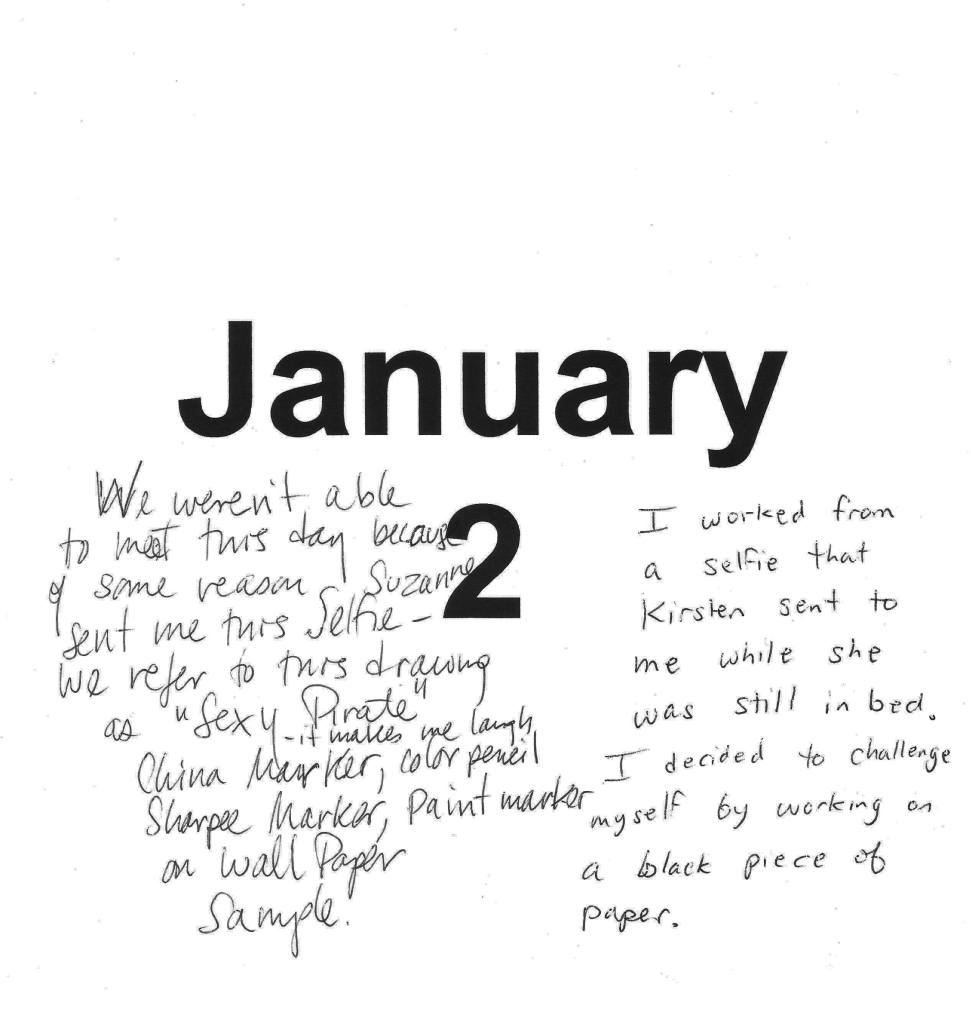 January
2
We weren't able
to meet this day because
of some reason Suzanne
sent me this Selfie –
We refer to this drawing
as "Sexy Pirate"
- it makes me laugh
China Marker, color pencil
Sharpee Marker, paint marker
on Wall Paper
Sample.
I worked from
a selfie that
Kirsten sent to
me while she
was still in bed.
I decided to challenge
myself by working on
a black piece of
paper.